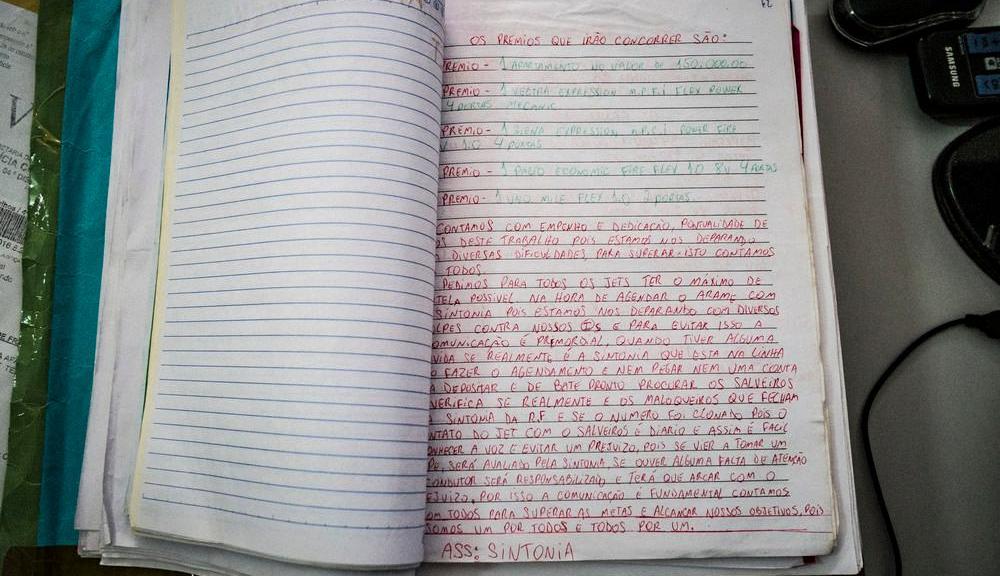 OS PREMIOS QUE IRÃO CONCORRER SÃO:
PREMIO - 1 APARTAMENTO NO VALOR DE 150.000.00
PREMIO - 1 VECTRA EXPRESSION M.P.F.I FLEX POWER
4 PORTAS MECANIC
PREMIO - 1 SIENA EXPRESSION M.P.C.I POWER FIRE
V 1.0 4 PORTAS
PREMIO - 1 PALIO ECONOMIC FIRE FLEX 1.0 8V 4 PORTAS
PREMIO - 1 UNO MILE FLEX 1.0 2 PORTAS.
CONTAMOS COM EMPENHO E DEDICAÇÃO, PONTUALIDADE DE
OS DESTE TRABALHO POIS ESTAMOS NOS DEPARANDO
DIVERSAS DIFICULDADES, PARA SUPERAR ISTO CONTAMOS
TODOS.
PEDIMOS PARA TODOS OS JETS TER O MÁXIMO DE
TELA POSSIVEL NA HORA DE AGENDAR O ARAME COM
SINTONIA POIS ESTAMOS NOS DEPARANDO COM DIVERSOS
LPES CONTRA NOSSOS E PARA EVITAR ISSO A
OMUNICAÇÃO É PRIMORDIAL, QUANDO TIVER ALGUMA
VIDA SE REALMENTE É A SINTONIA QUE ESTA NA LINHA
O FAZER O AGENDAMENTO E NEM PEGAR NEM UMA CONTA
A DEPOSITAR E DE BATE PRONTO PROCURAR OS SALVEIROS
VERIFICA SE REALMENTE E OS MALOQUEIROS QUE FECHAM
SINTONIA DA R.F E SE O NUMERO FOI CLONADO POIS O
NTATO DO JET COM O SALVEIROS É DIARIO E ASSIM É FACIL
ONHECER A VOZ E EVITAR UM PREJUIZO, POIS SE VIER A TOMAR UM
PE, SERÁ AVALIADO PELA SINTONIA SE OUVER ALGUMA FALTA DE ATENÇÃO
CONDUTOR SERÁ RESPONSABILIZADO E TERÁ QUE ARCAR COM O
EJUIZO, POR ISSO A COMUNICAÇÃO É FUNDAMENTAL CONTAMOS
OM TODOS PARA SUPERAR AS METAS E ALCANÇAR NOSSOS OBJETIVOS, POIS
SOMOS UM POR TODOS E TODOS POR UM.
ASS: SINTONIA
SAMSUNG